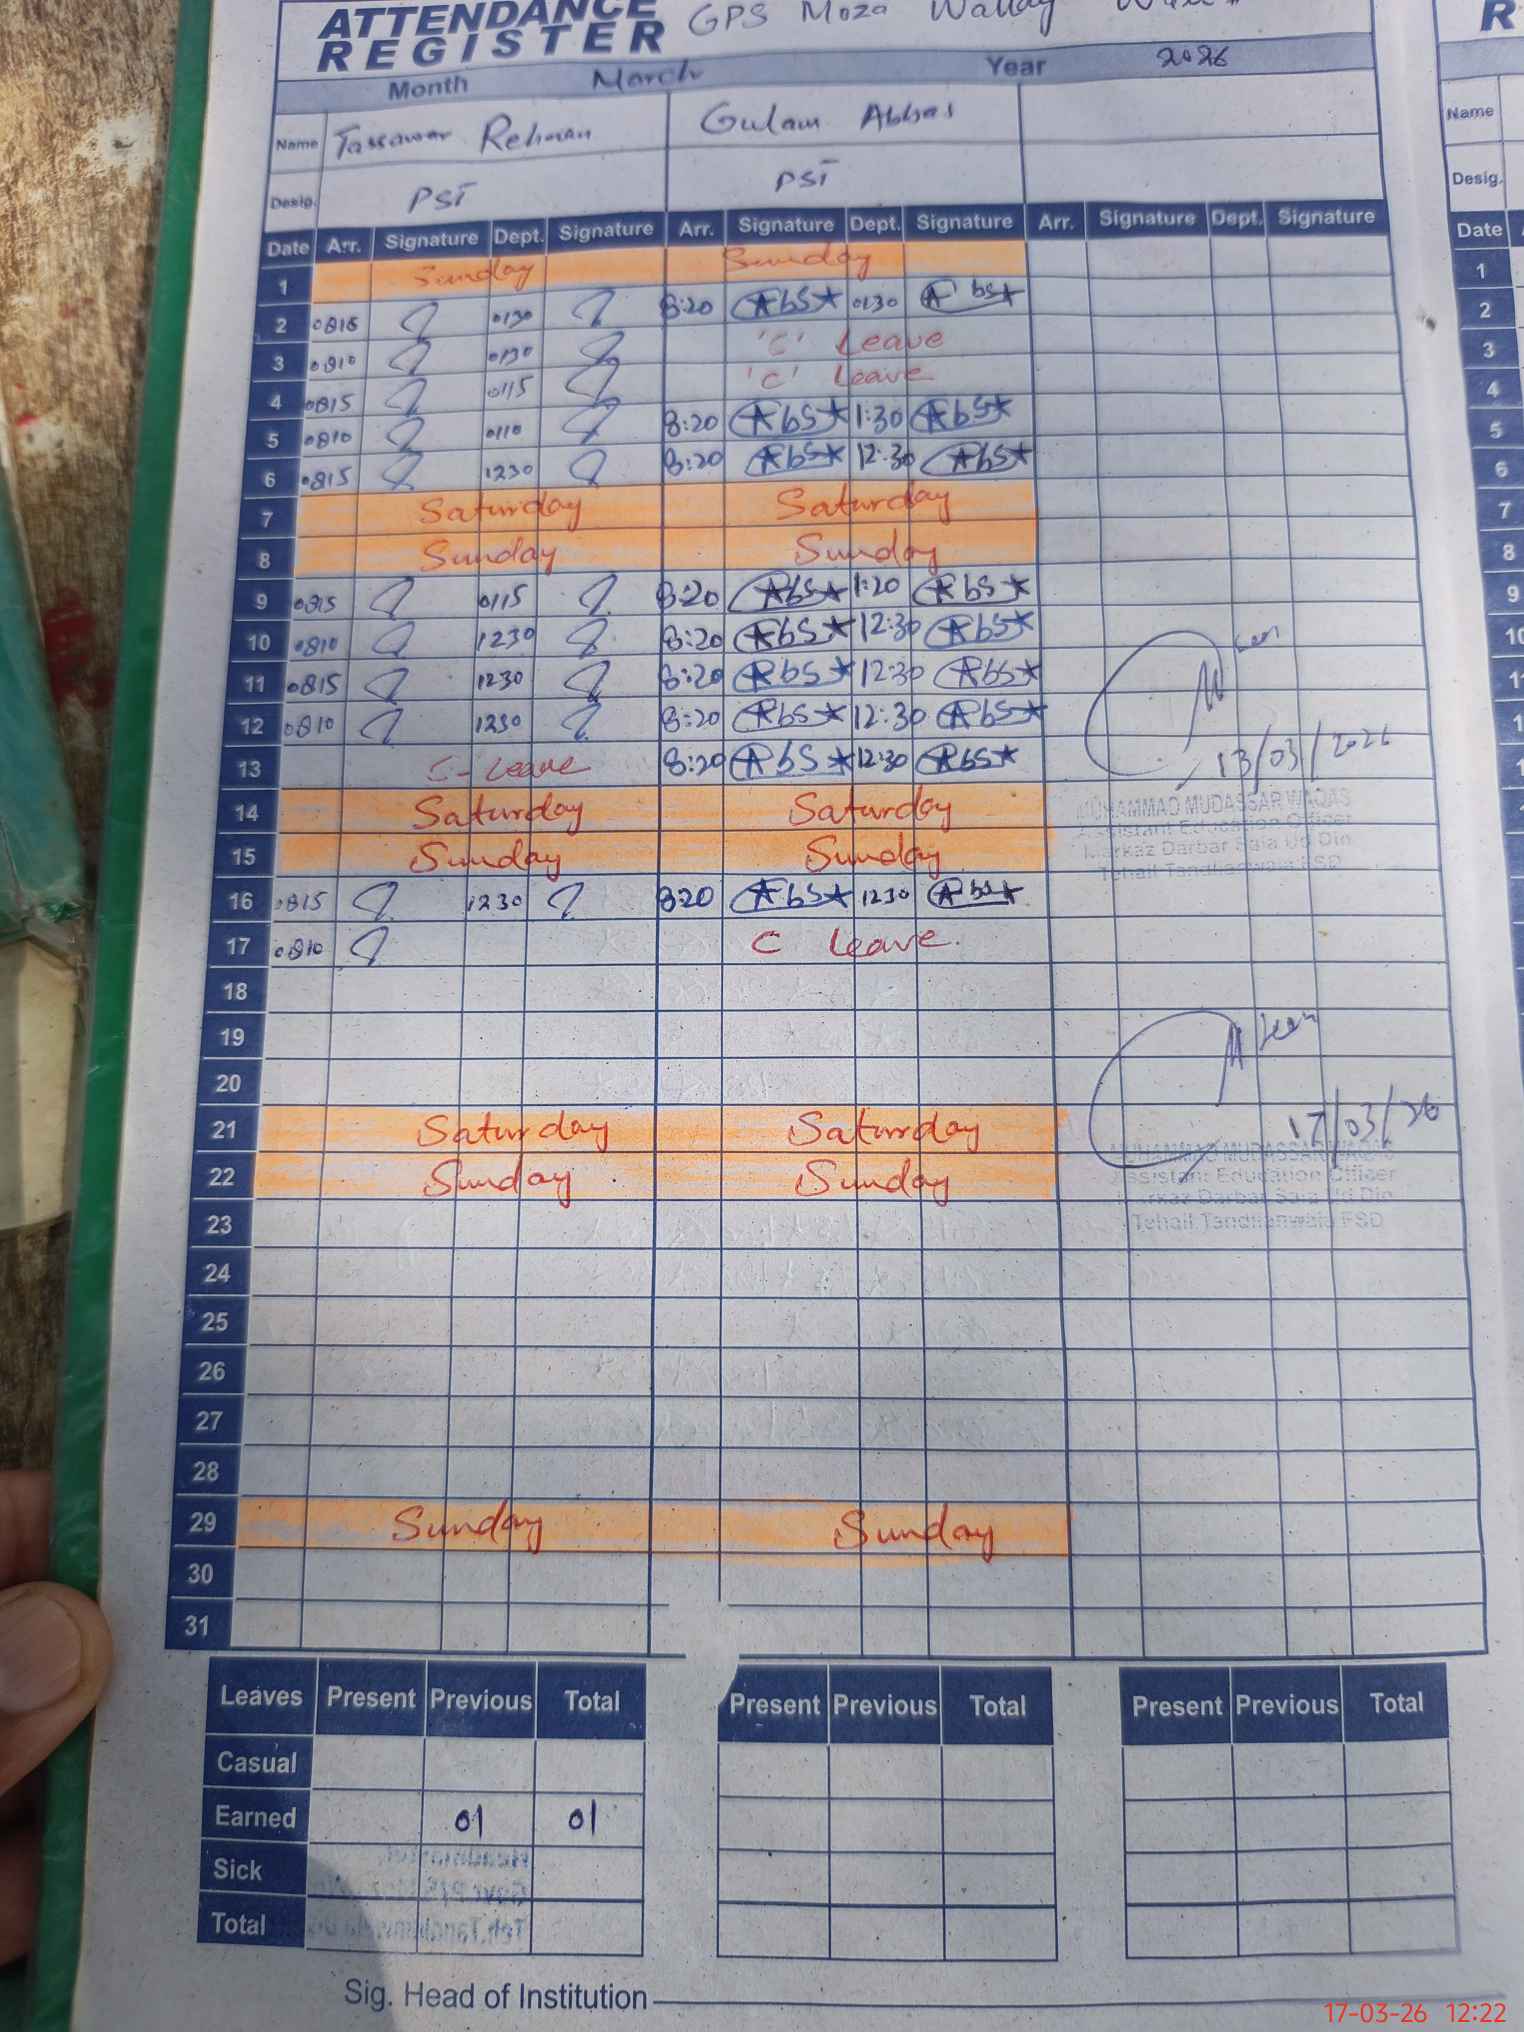 ATTENDANCE GPS Moza
REGISTER
Month March Year 2026
Name Tassawar Rehman Gulam Abbas
Desig. PST PST
Date Arr. Signature Dept. Signature Arr. Signature Dept. Signature Arr. Signature Dept. Signature
1 Sunday Sunday
2 0815 0130 8:20 Abs 0130 Abs
3 0810 0130 'C' Leave
4 0815 0115 'C' Leave
5 0810 0110 8:20 Abs 1:30 Abs
6 0815 1230 8:20 Abs 12:30 Abs
7 Saturday Saturday
8 Sunday Sunday
9 0815 0115 8:20 Abs 1:20 Abs
10 0810 1230 8:20 Abs 12:30 Abs
11 0815 1230 8:20 Abs 12:30 Abs
12 0810 1230 8:20 Abs 12:30 Abs
13 C-Leave 8:20 Abs 12:30 Abs
13/03/2026
14 Saturday Saturday
MUHAMMAD MUDASSAR WAQAS
Assistant Education Officer
15 Sunday Sunday
Markaz Darbar Saia Ud Din
Tehsil Tandlianwala FSD
16 0815 1230 8:20 Abs 1230 Abs
17 0810 C Leave
18
19
20
21 Saturday Saturday
17/03/26
MUHAMMAD MUDASSAR WAQAS
22 Sunday Sunday
Assistant Education Officer
Markaz Darbar Saia Ud Din
23
Tehsil Tandlianwala FSD
24
25
26
27
28
29 Sunday Sunday
30
31
Leaves Present Previous Total Present Previous Total Present Previous Total
Casual
Earned 01 01
Sick
Total
Sig. Head of Institution
17-03-26 12:22
R
Name
Desig.
Date
1
2
3
4
5
6
7
8
9
10